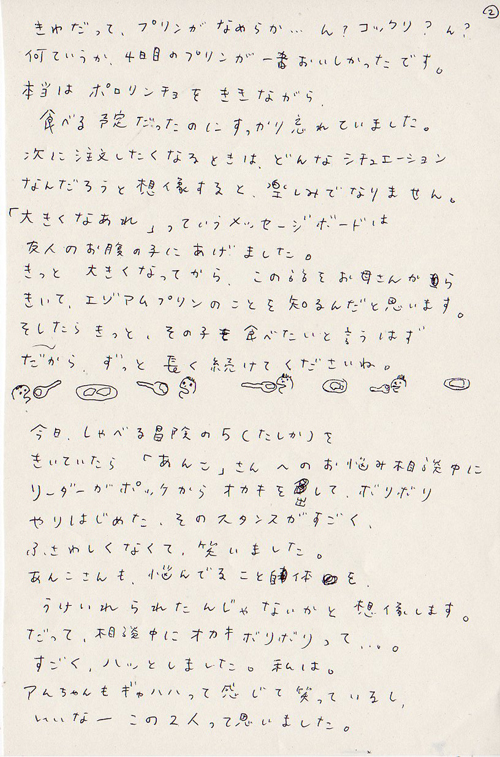 ②
きゅだって、プリンがなめらか… ん？コックリ？ん？
何ていうか、4日目のプリンが一番おいしかったです。
本当は ポロリンチョを ききながら、
食べる予定だったのにすっかり忘れていました。
次に注文したくなるときは、どんなシチュエーション
なんだろうと想像すると、楽しみでなりません。
「大きくなあれ」っていうメッセージボードは
友人のお腹の子にあげました。
きっと 大きくなってから、この話をお母さんから
きいて、エゾアムプリンのことを知るんだと思います。
そしたらきっと、その子も食べたいと言うはず
だから、ずっと長く続けてくださいね。
今日、しゃべる冒険の5(たしか)を
きいていたら 「あんこ」さんへのお悩み相談中に
リーダーがポッケからオカキを出して、ボリボリ
やりはじめた、そのスタンスがすごく、
ふさわしくなくて、笑いました。
あんこさんも、悩んでること自体を、
うけいれられたんじゃないかと想像します。
だって、相談中にオカキボリボリって…。
すごく、ハッとしました。私は。
アムちゃんもギャハハって感じで笑っているし、
いいなー この2人って思いました。